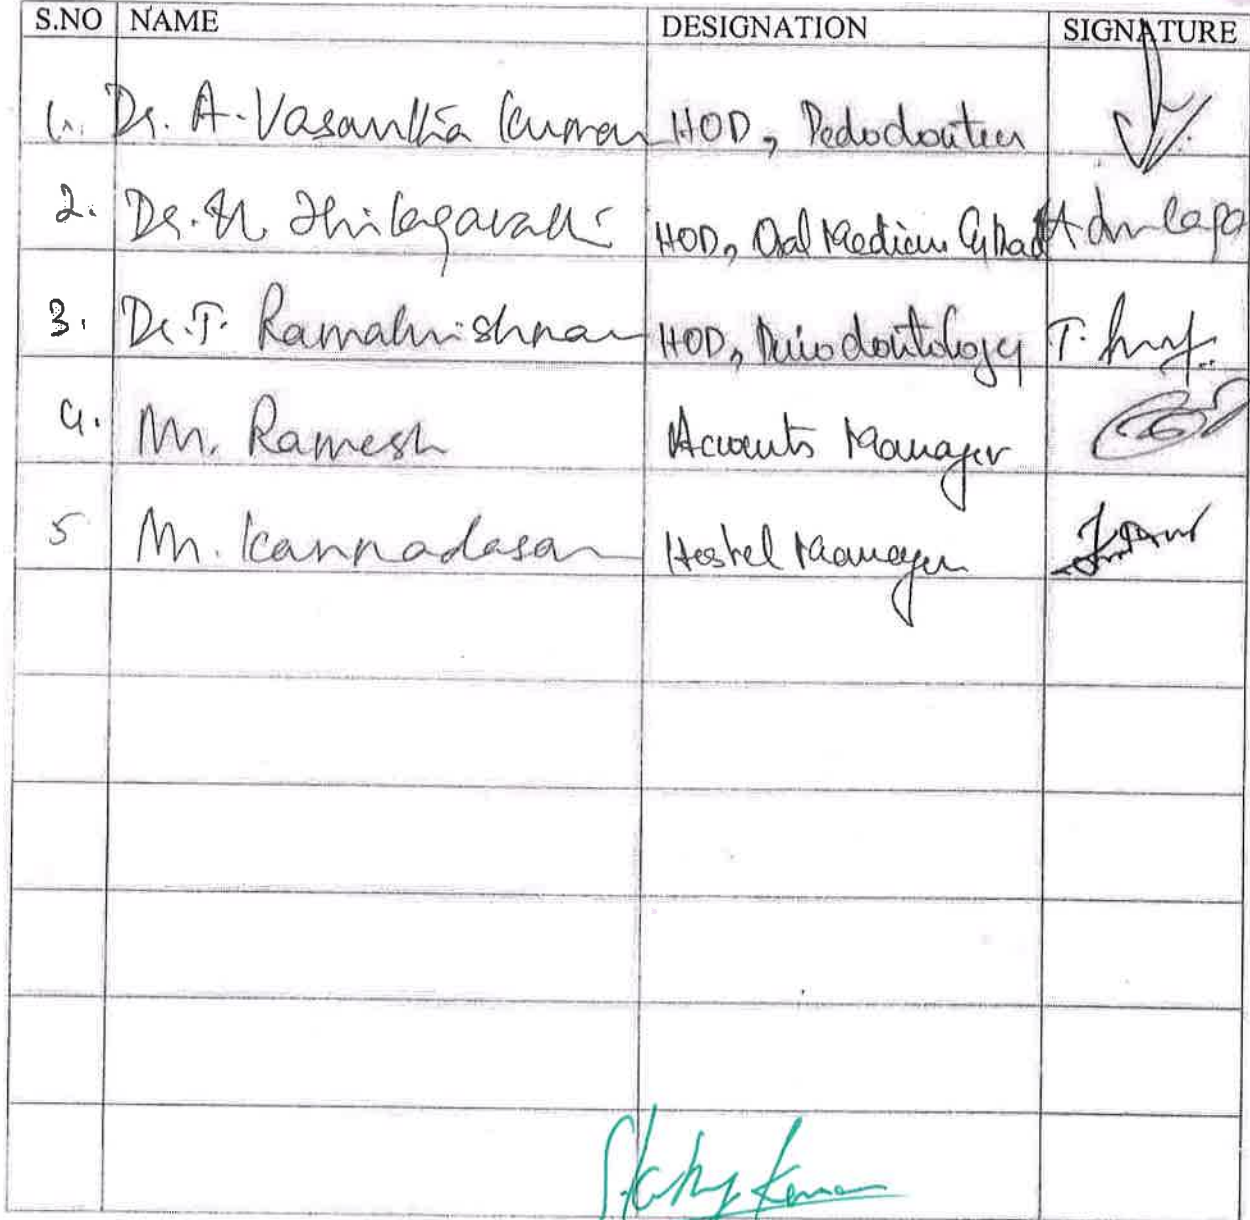 S.NO NAME DESIGNATION SIGNATURE
1. Dr. A. Vasantha Kumari HOD, Pedodontics
2. Dr. Thilagavathi HOD, Oral Medicine
3. Dr. T. Ramakrishnan HOD, Periodontology T.
4. Mr. Ramesh Accounts Manager
5 Mr. Kannadasan Hostel Manager